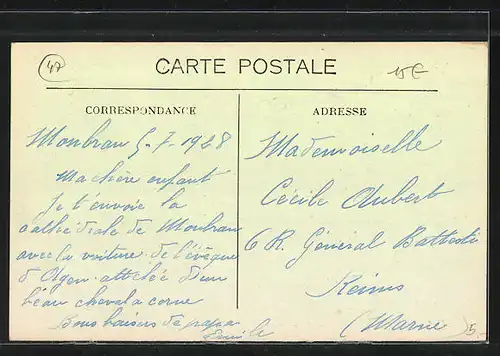 47
CARTE POSTALE
15€
CORRESPONDANCE
ADRESSE
Monbran 5-7-1928
Ma chère enfant
Je t'envoie la
cathédrale de Monbran
avec la voiture de l'évêque
d'Agen attelée d'un
beau cheval a corne
Bons baisers de papa
Mademoiselle
Cécile Aubert
6 R. Général Battesti
Reims
(Marne)
5-